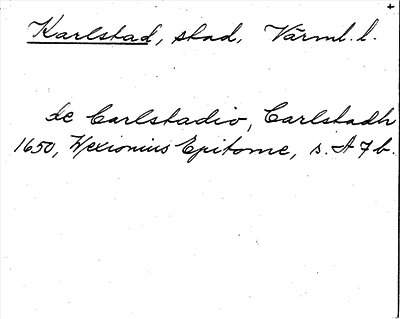 Karlstad, stad, Värml. l.
de Carlstadio, Carlstadh
1650, Wexionius Epitome, s. A 7 b.